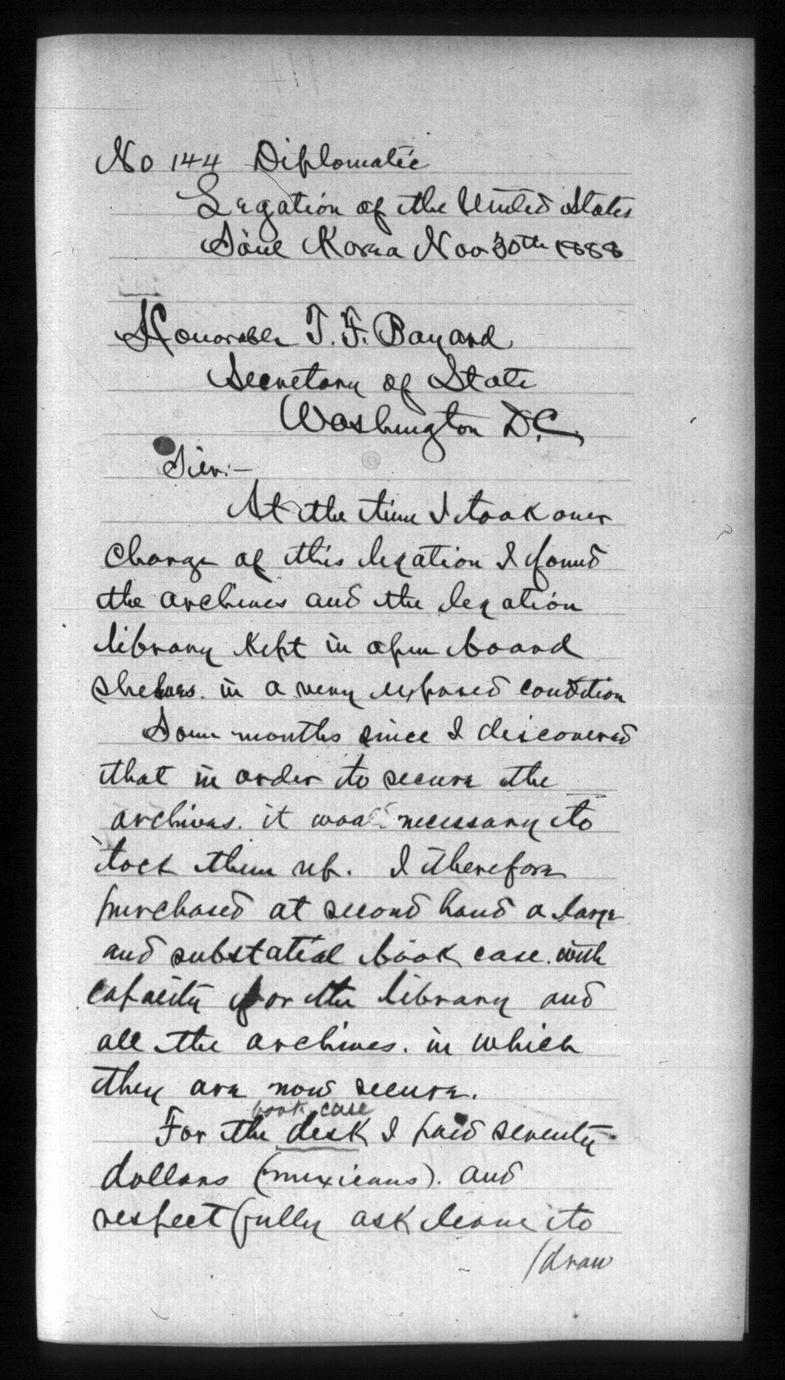 No 144 Diplomatic
Legation of the United States
Söul Korea Nov 30th 1888
Honorable T. F. Bayard
Secretary of State
Washington D.C.
Sir:—
At the time I took over
charge of this legation I found
the archives and the legation
library kept in open board
shelves. in a very exposed condition
Some months since I discovered
that in order to secure the
archives. it was necessary to
lock them up. I therefore
purchased at second hand a large
and substatial book case. with
capacity for the library and
all the archives. in which
they are now secure.
book case
For the desk I paid seventy
dollars (mexicans). and
respectfully ask leave to
/draw